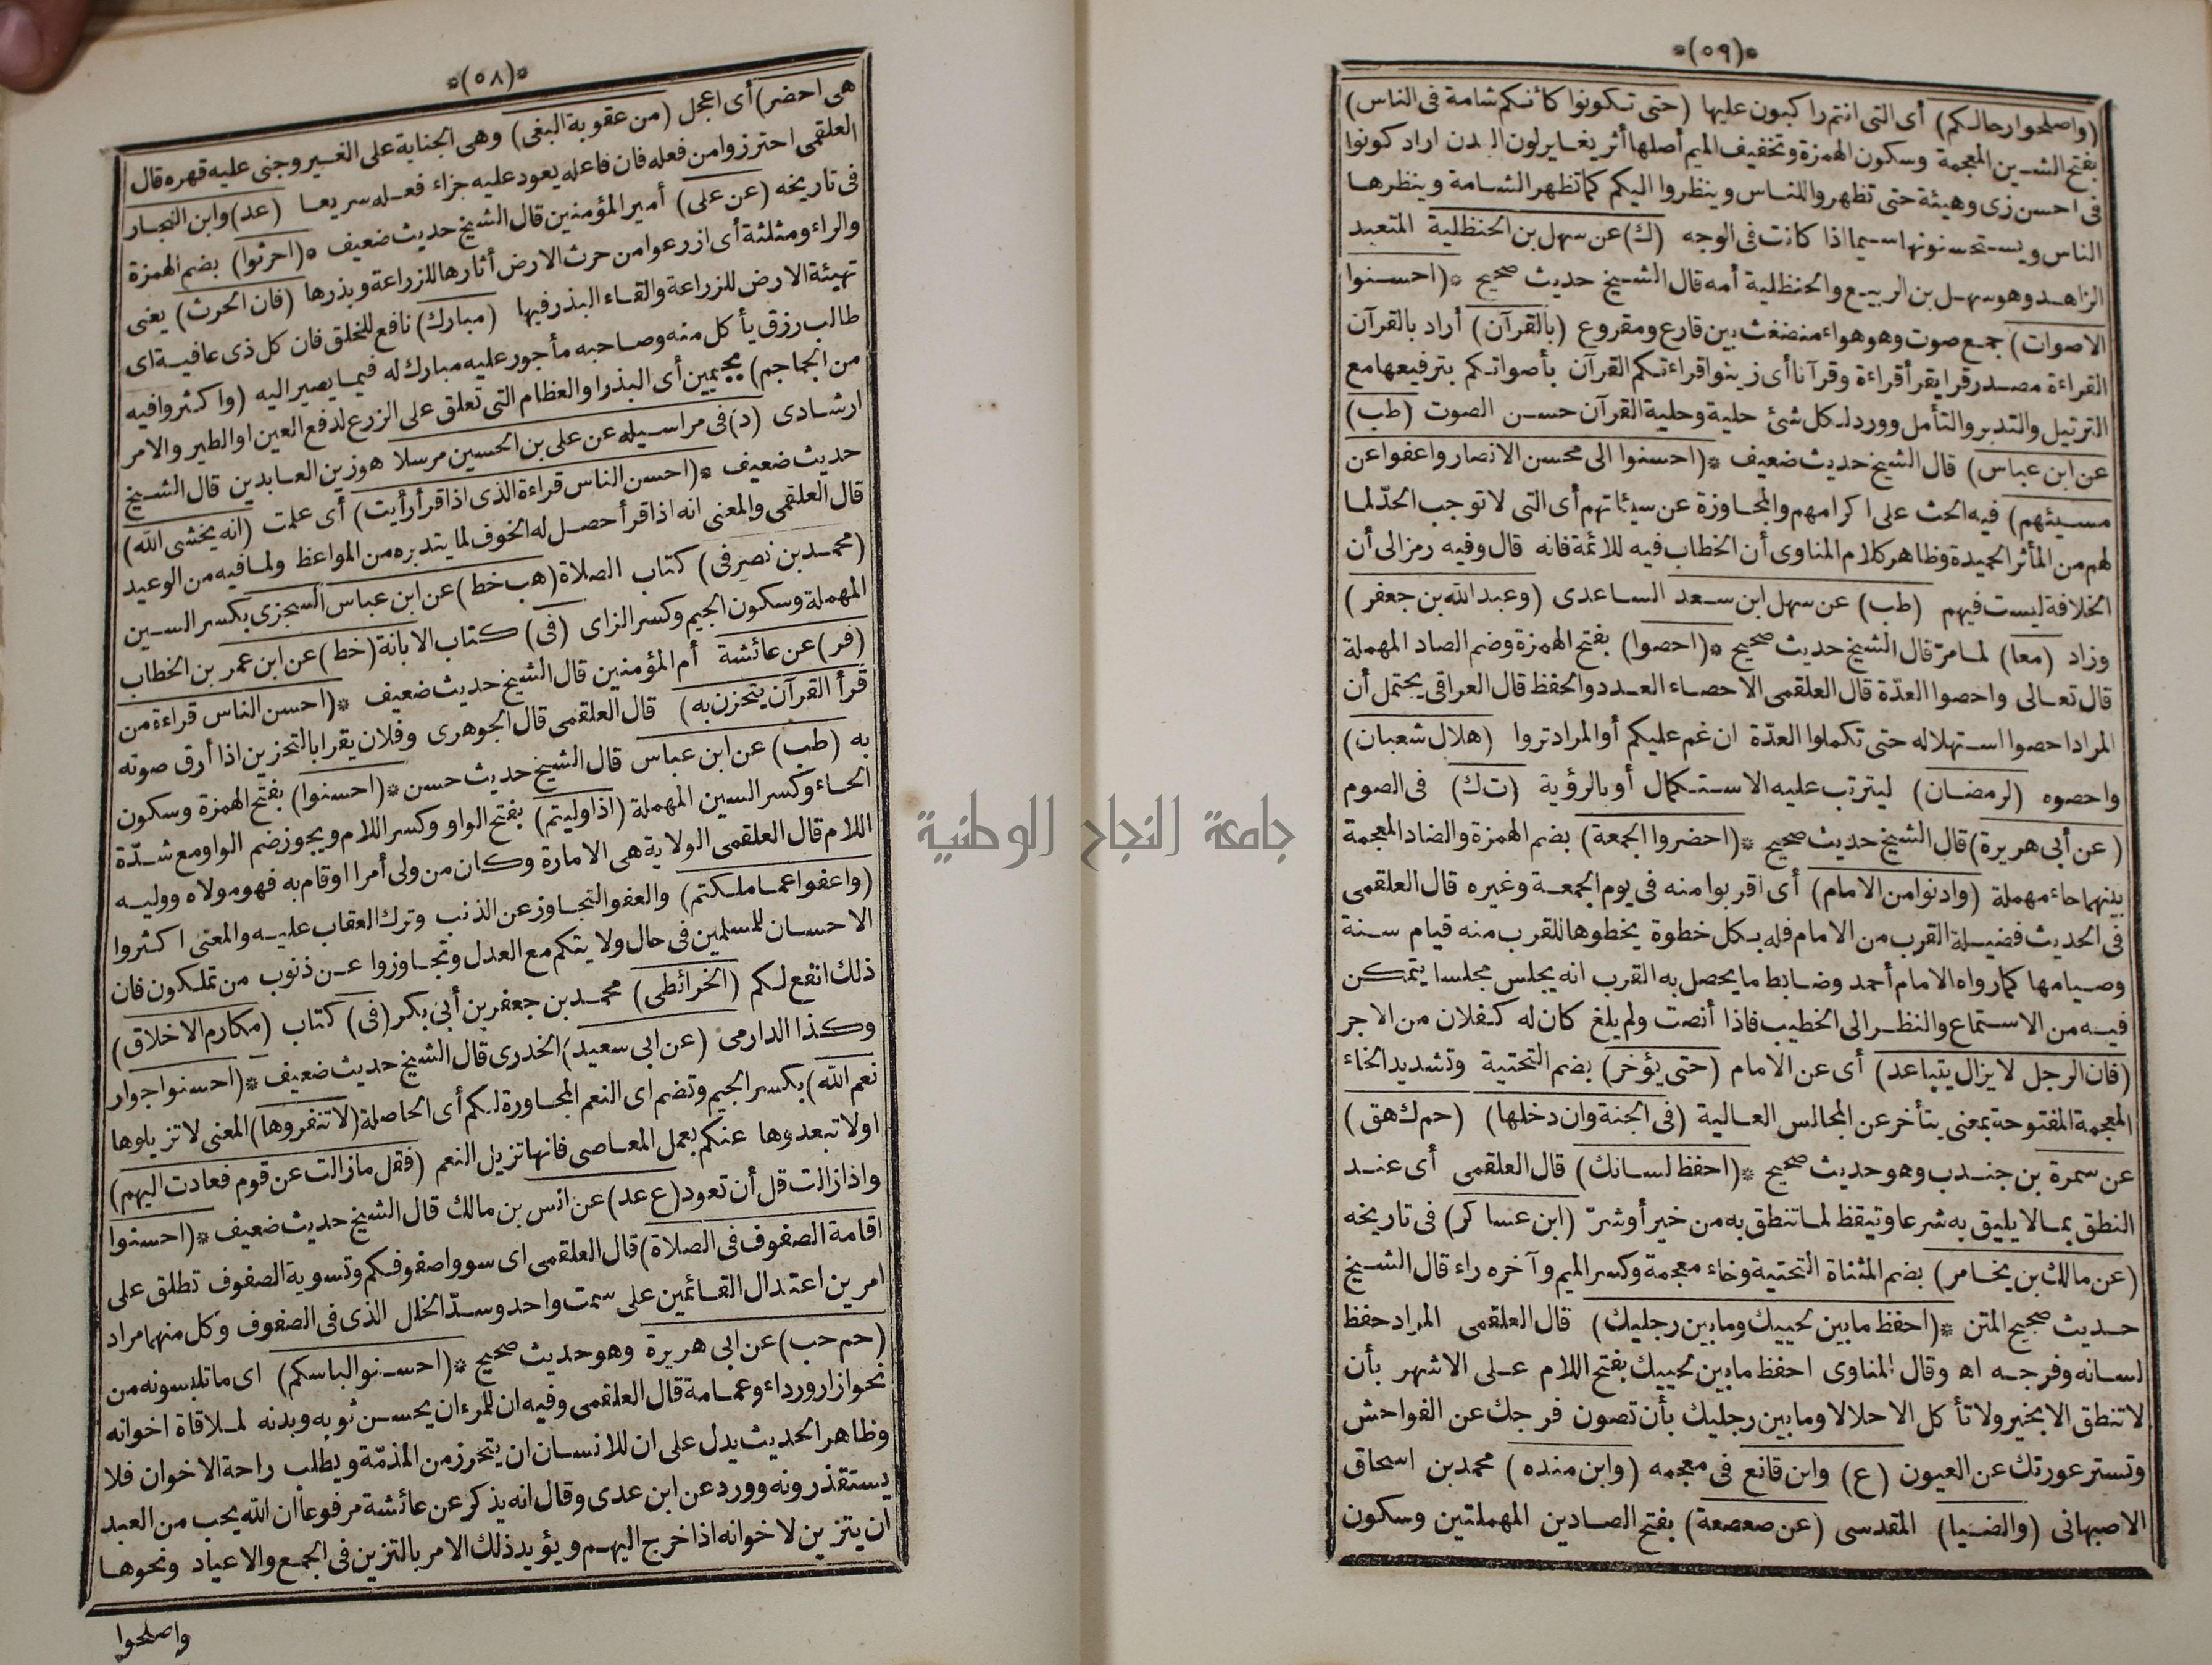 *(٥٨)*
هى احضر) أى اعجل (من عقوبة البغى) وهى الجناية على الغير وجنى عليه قهره قال
العلقمى احترزوا من فعله فان فاعله يعود عليه جزاء فعله سريعا (عد) وابن النجار
فى تاريخه (عن على) أمير المؤمنين قال الشيخ حديث ضعيف *(احرثوا) بضم الهمزة
والراء ومثلثة أى ازرعوا من حرث الارض أثارها للزراعة وبذرها (فان الحرث) يعنى
تهيئة الارض للزراعة والقاء البذر فيها (مبارك) نافع للخلق فان كل ذى عافية اى
طالب رزق يأكل منه وصاحبه مأجور عليه مبارك له فيما يصير اليه (واكثروا فيه
من الجماجم) بجيمين أى البذر او العظام التى تعلق على الزرع لدفع العين او الطير والامر
ارشادى (د) فى مراسيله عن على بن الحسين مرسلا هو زين العابدين قال الشيخ
حديث ضعيف *(احسن الناس قراءة الذى اذا قرأ رأيت) أى علمت (انه يخشى الله)
قال العلقمى والمعنى انه اذا قرأ حصل له الخوف لما يتدبره من المواعظ ولما فيه من الوعيد
(محمد بن نصر فى) كتاب الصلاة (هب خط) عن ابن عباس السجزى بكسر السين
المهملة وسكون الجيم وكسر الزاى (فى) كتاب الابانة (خط) عن ابن عمر بن الخطاب
(فر) عن عائشة أم المؤمنين قال الشيخ حديث ضعيف *(احسن الناس قراءة من
قرأ القرآن يتحزن به) قال العلقمى قال الجوهرى وفلان يقرا بالتحزين اذا أرق صوته
به (طب) عن ابن عباس قال الشيخ حديث حسن *(احسنوا) بفتح الهمزة وسكون
الحاء وكسر السين المهملة (اذا وليتم) بفتح الواو وكسر اللام ويجوز ضم الواو مع شدّة
اللام قال العلقمى الولاية هى الامارة وكان من ولى أمرا او قام به فهو مولاه ووليه
(واعفوا عما ملكتم) والعفو التجاوز عن الذنب وترك العقاب عليه والمعنى اكثروا
الاحسان للمسلمين فى حال ولايتكم مع العدل وتجاوزوا عن ذنوب من تملكون فان
ذلك انفع لكم (الخرائطى) محمد بن جعفر بن أبى بكر (فى) كتاب (مكارم الاخلاق)
وكذا الدارمى (عن ابى سعيد) الخدرى قال الشيخ حديث ضعيف *(احسنوا جوار
نعم الله) بكسر الجيم وتضم اى النعم المجاورة لكم أى الحاصلة (لا تنفروها) المعنى لا تزيلوها
او لا تبعدوها عنكم بعمل المعاصى فانها تزيل النعم (فقل ما زالت عن قوم فعادت اليهم)
واذا زالت قل أن تعود (ع عد) عن انس بن مالك قال الشيخ حديث ضعيف *(احسنوا
اقامة الصفوف فى الصلاة) قال العلقمى اى سووا صفوفكم وتسوية الصفوف تطلق على
امرين اعتدال القائمين على سمت واحد وسدّ الخلل الذى فى الصفوف وكل منهما مراد
(حم حب) عن ابى هريرة وهو حديث صحيح *(احسنوا لباسكم) اى ما تلبسونه من
نحو ازار ورداء وعمامة قال العلقمى وفيه ان للمرء ان يحسن ثوبه وبدنه لملاقاة اخوانه
وظاهر الحديث يدل على ان للانسان ان يتحرز من المذمّة ويطلب راحة الاخوان فلا
يستقذرونه وورد عن ابن عدى وقال انه يذكر عن عائشة مرفوعا أن الله يحب من العبد
ان يتزين لاخوانه اذا خرج اليهم ويؤيد ذلك الامر بالتزين فى الجمع والاعياد ونحوها
واصلحوا
*(٥٩)*
(واصلحوا رحالكم) أى التى انتم راكبون عليها (حتى تكونوا كأنكم شامة فى الناس)
بفتح الشين المعجمة وسكون الهمزة وتخفيف الميم أصلها أثر يغاير لون البدن اراد كونوا
فى احسن زى وهيئة حتى تظهروا للناس وينظروا اليكم كما تظهر الشامة وينظرها
الناس ويستحسنونها سيما اذا كانت فى الوجه (ك) عن سهل بن الحنظلية المتعبد
الزاهد وهو سهل بن الربيع والحنظلية أمه قال الشيخ حديث صحيح *(احسنوا
الاصوات) جمع صوت وهو هواء منضغث بين قارع ومقروع (بالقرآن) أراد بالقرآن
القراءة مصدر قرا يقرأ قراءة وقرآنا أى زينوا قراءتكم القرآن بأصواتكم بترفيعها مع
الترتيل والتدبر والتأمل وورد لكل شئ حلية وحلية القرآن حسن الصوت (طب)
عن ابن عباس) قال الشيخ حديث ضعيف *(احسنوا الى محسن الانصار واعفوا عن
مسيئهم) فيه الحث على اكرامهم والمجاوزة عن سيئاتهم أى التى لا توجب الحدّ لما
لهم من المأثر الحميدة وظاهر كلام المناوى أن الخطاب فيه للائمة فانه قال وفيه رمز الى أن
الخلافة ليست فيهم (طب) عن سهل ابن سعد الساعدى (وعبد الله بن جعفر)
وزاد (معا) لما مرّ قال الشيخ حديث صحيح *(احصوا) بفتح الهمزة وضم الصاد المهملة
قال تعالى واحصوا العدّة قال العلقمى الاحصاء العدد والحفظ قال العراقى يحتمل أن
المراد احصوا استهلاله حتى تكملوا العدّة ان غم عليكم أو المراد تروا (هلال شعبان)
واحصوه (لرمضان) ليترتب عليه الاستكمال أو بالرؤية (ت ك) فى الصوم
(عن أبى هريرة) قال الشيخ حديث صحيح *(احضروا الجمعة) بضم الهمزة والضاد المعجمة
بينهما حاء مهملة (وادنوا من الامام) أى اقربوا منه فى يوم الجمعة وغيره قال العلقمى
فى الحديث فضيلة القرب من الامام فله بكل خطوة يخطوها للقرب منه قيام سنة
وصيامها كما رواه الامام أحمد وضابط ما يحصل به القرب انه يجلس مجلسا يتمكن
فيه من الاستماع والنظر الى الخطيب فاذا أنصت ولم يلغ كان له كفلان من الاجر
(فان الرجل لا يزال يتباعد) أى عن الامام (حتى يؤخر) بضم التحتية وتشديد الخاء
المعجمة المفتوحة بمعنى يتأخر عن المجالس العالية (فى الجنة وان دخلها) (حم ك هق)
عن سمرة بن جندب وهو حديث صحيح *(احفظ لسانك) قال العلقمى أى عند
النطق بما لا يليق به شرعا وتيقظ لما تنطق به من خير أو شرّ (ابن عساكر) فى تاريخه
(عن مالك بن يخامر) بضم المثناة التحتية وخاء معجمة وكسر الميم وآخره راء قال الشيخ
حديث صحيح المتن *(احفظ ما بين لحييك وما بين رجليك) قال العلقمى المراد حفظ
لسانه وفرجه اه وقال المناوى احفظ ما بين لحييك بفتح اللام على الاشهر بأن
لا تنطق الا بخير ولا تأكل الا حلالا وما بين رجليك بأن تصون فرجك عن الفواحش
وتستر عورتك عن العيون (ع) وابن قانع فى معجمه (وابن منده) محمد بن اسحاق
الاصبهانى (والضيا) المقدسى (عن صعصعة) بفتح الصادين المهملتين وسكون
جامعة النجاح الوطنية